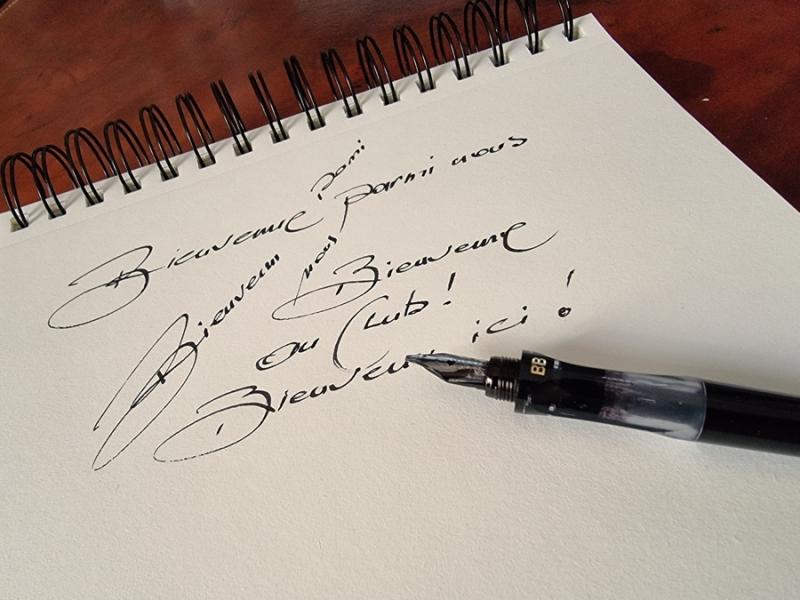 Bienvenue parmi nous
Bienvenu parmi nous
Bienvenue
au Club !
Bienvenu ici !
BB